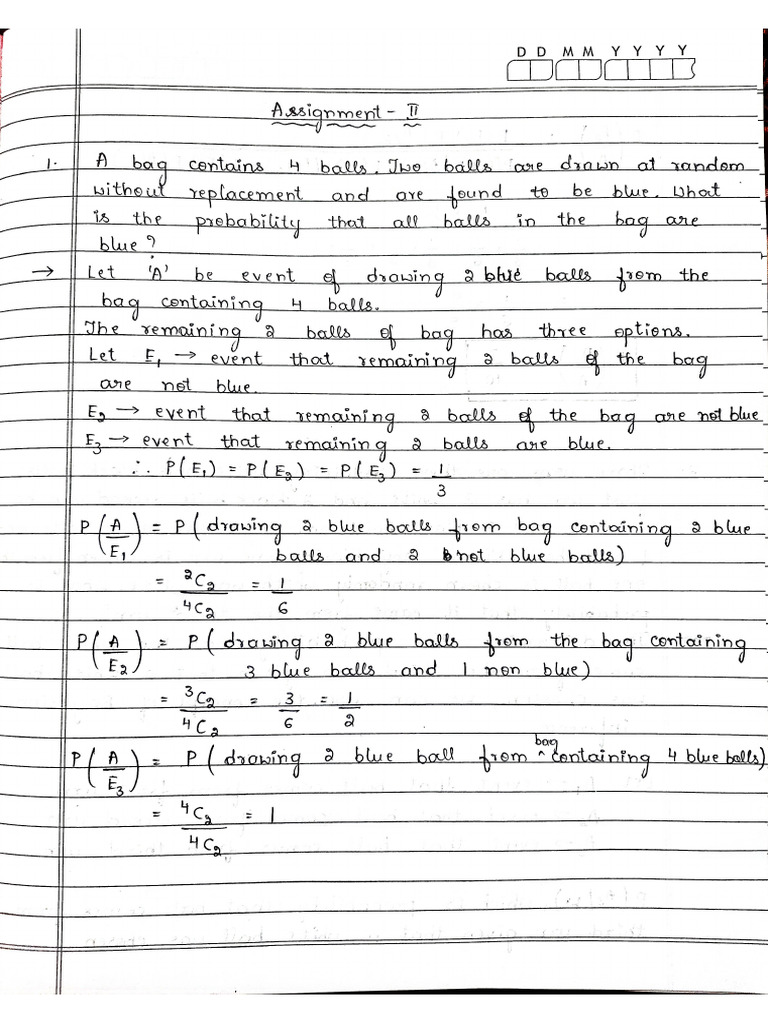 D D M M Y Y Y Y
Assignment - II
1. A bag contains 4 balls. Two balls are drawn at random
without replacement and are found to be blue. What
is the probability that all balls in the bag are
blue?
→ Let 'A' be event of drawing 2 blue balls from the
bag containing 4 balls.
The remaining 2 balls of bag has three options.
Let E₁ → event that remaining 2 balls of the bag
are not blue.
E₂ → event that remaining 2 balls of the bag are not blue
E₃ → event that remaining 2 balls are blue.
∴ P(E₁) = P(E₂) = P(E₃) = 1/3
P(A/E₁) = P( drawing 2 blue balls from bag containing 2 blue
balls and 2 not blue balls)
= ²C₂/⁴C₂ = 1/6
P(A/E₂) = P( drawing 2 blue balls from the bag containing
3 blue balls and 1 non blue)
= ³C₂/⁴C₂ = 3/6 = 1/2
P(A/E₃) = P( drawing 2 blue ball from bag containing 4 blue balls)
= ⁴C₂/⁴C₂ = 1